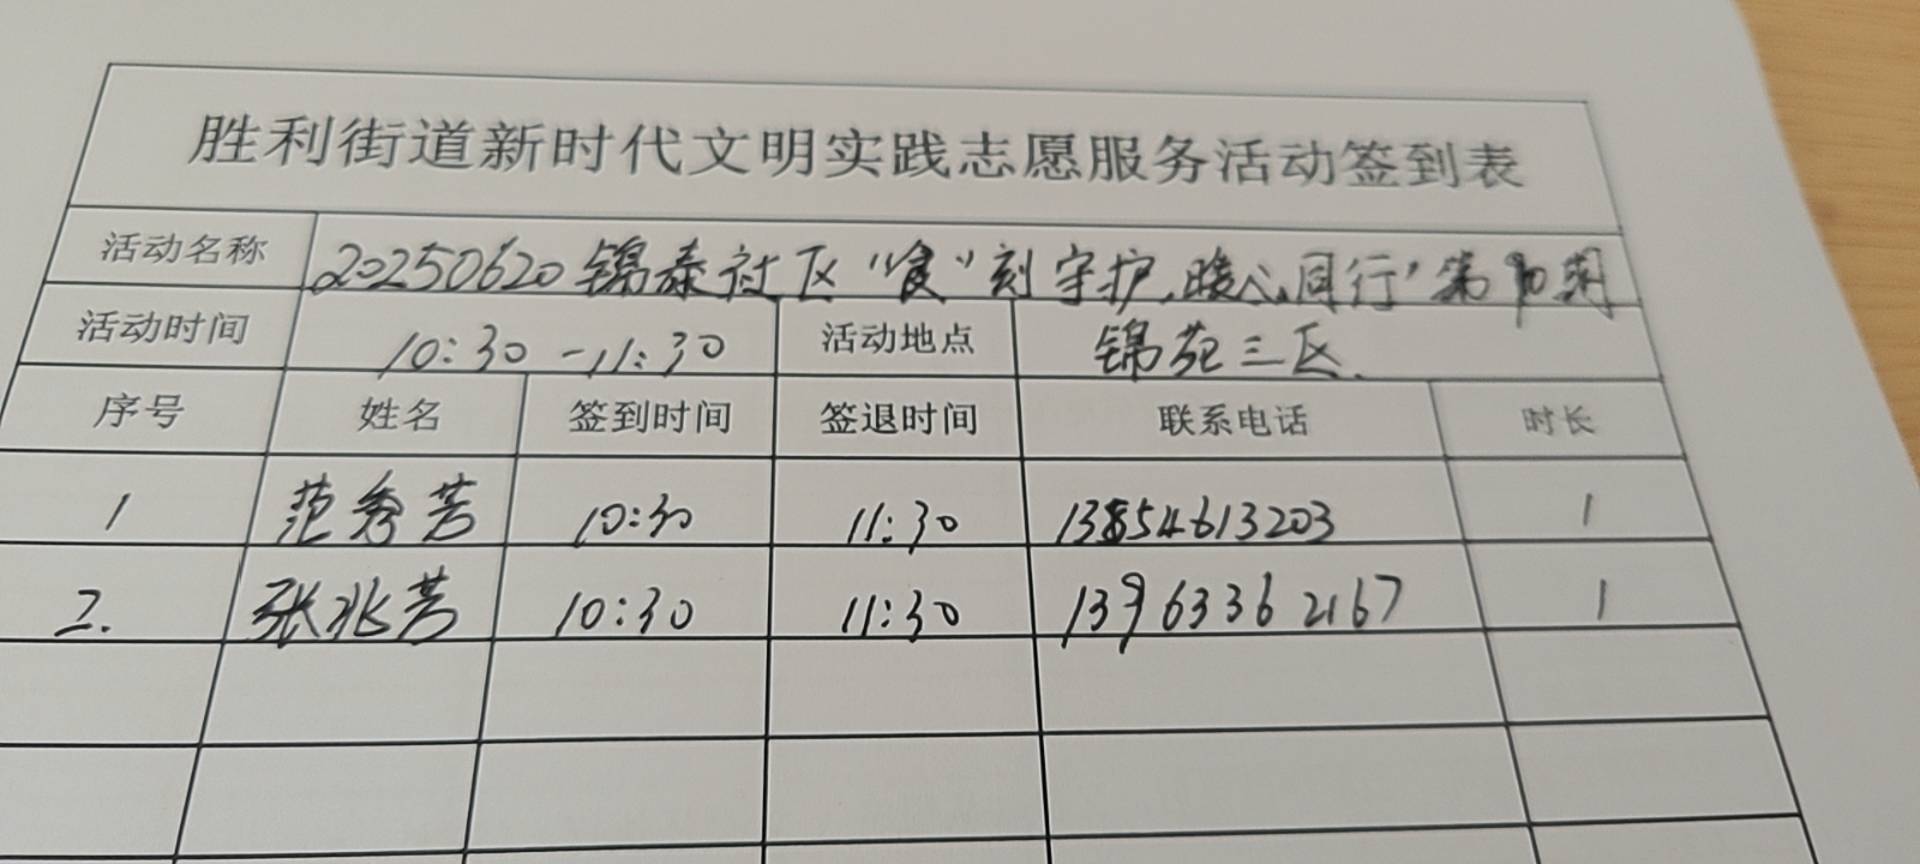 胜利街道新时代文明实践志愿服务活动签到表
活动名称 20250620锦泰社区“食”刻守护,暖心同行”第 期
活动时间 10:30-11:30 活动地点 锦苑三区.
序号 姓名 签到时间 签退时间 联系电话 时长
1 范秀芳 10:30 11:30 13854613203 1
2. 张兆芳 10:30 11:30 13963362167 1